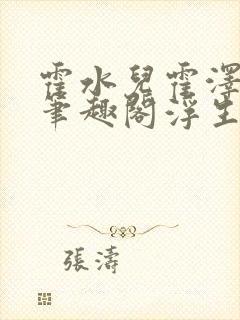 霍水兒霍澤
筆趣閣浮生
張濤